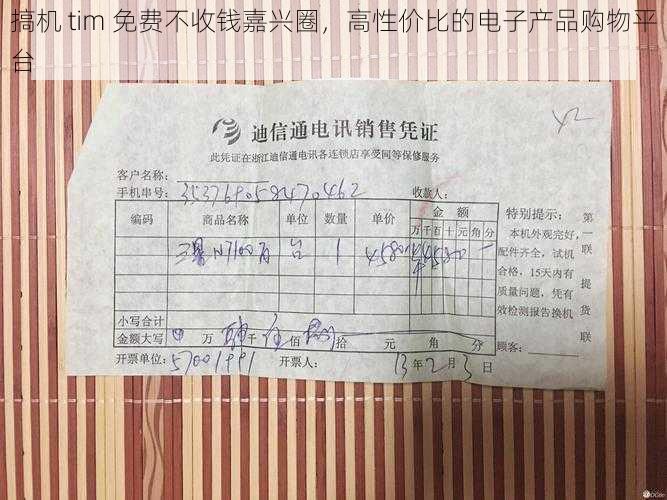 搞机 tim 免费不收钱嘉兴圈，高性价比的电子产品购物平
台
迪信通电讯销售凭证
此凭证在浙江迪信通电讯各连锁店享受同等保修服务
客户名称：
手机串号： 353769058470462 收款人：
编码 商品名称 单位 数量 单价 金额
万 千 百 十 元 角 分
三星N7100白 台 1 4580
小写合计
金额大写 万 千 佰 拾 元 角 分
开票单位：57001991 开票人： 13年2月3日
特别提示：
本机外观完好，
配件齐全，试机
合格，15天内有
质量问题，凭有
效检测报告换机
顾客：
第一联 提货联